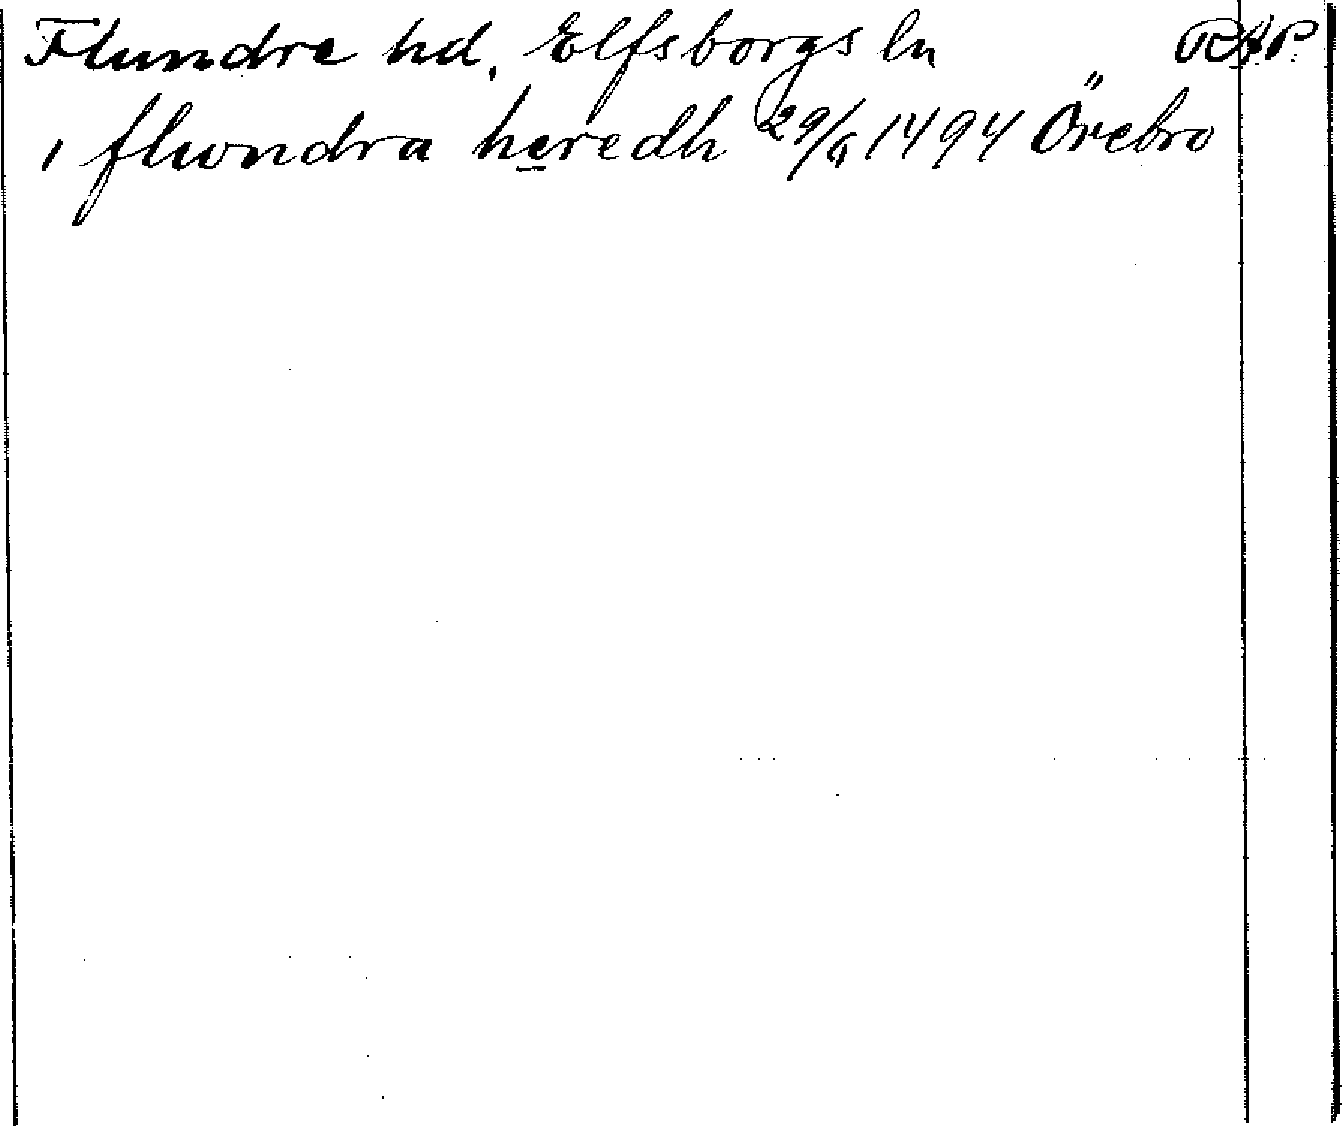 Flundre hd, Elfsborgs ln RAP.
i flwndra heredh 29/9 1494 Örebro